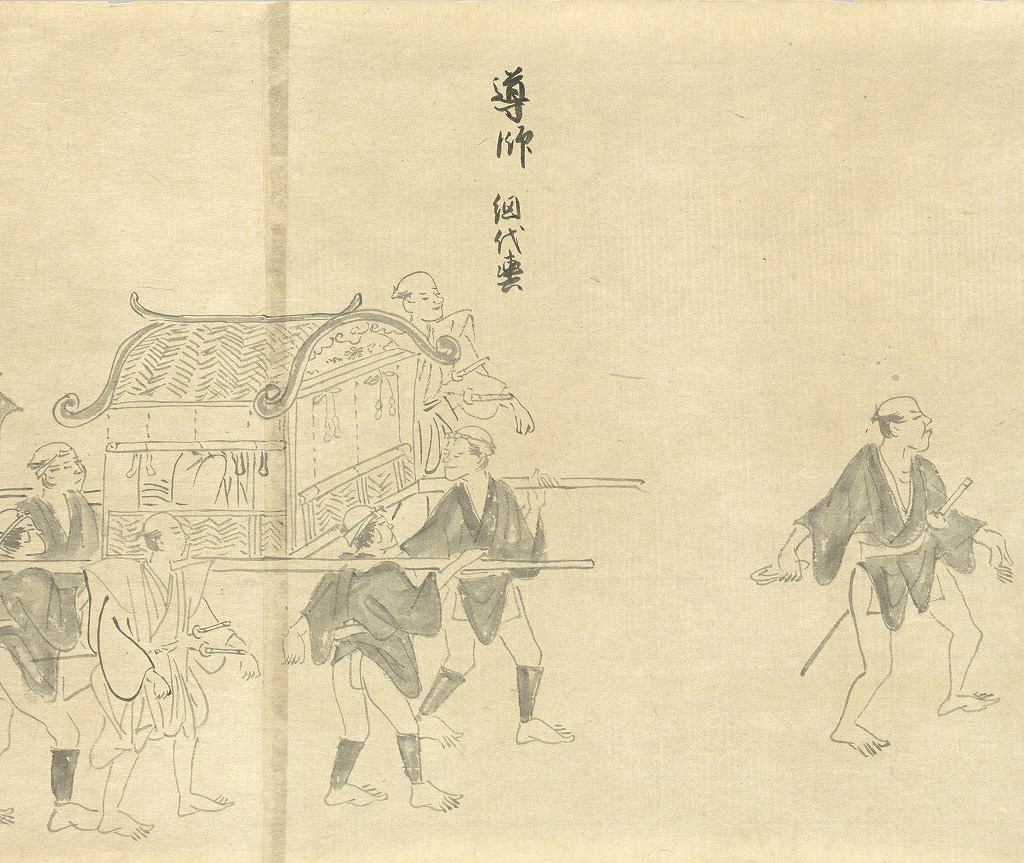 導師 網代輿